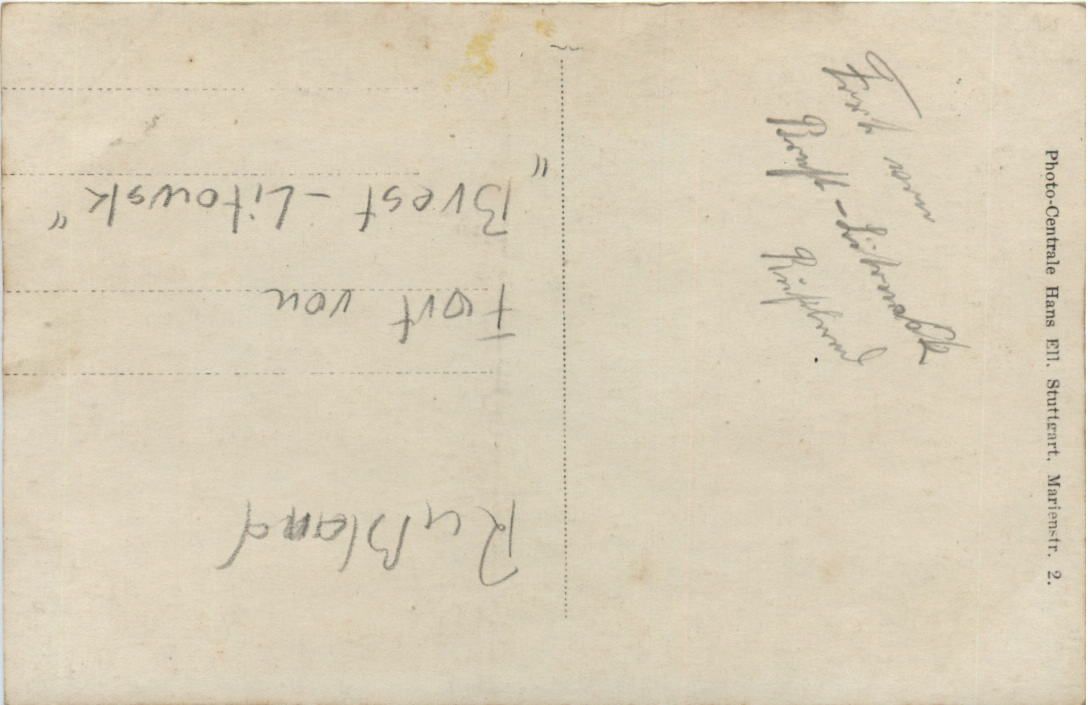 Photo-Centrale Hans Ell. Stuttgart. Marienstr. 2.
Fort von
Brest-Litowsk
Rußland
Rußland
Fort von
„Brest-Litowsk“